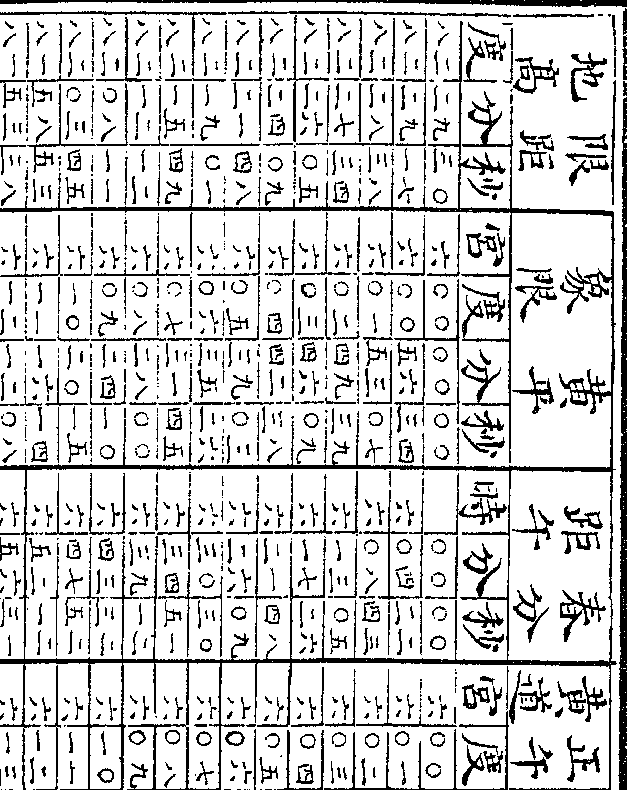 限距地高　黄平象限　春分距午　正午黄道
度　分　秒　宮　度　分　秒　時　分　秒　宮　度
八二　二九　三〇　六　〇〇　〇〇　〇〇　〇〇　〇〇　六　〇〇
八二　二九　一七　六　〇〇　五六　三四　六　〇四　二二　六　〇一
八二　二八　三八　六　〇一　五三　〇七　六　〇八　四三　六　〇二
八二　二七　三四　六　〇二　四九　三九　六　一三　〇五　六　〇三
八二　二六　〇五　六　〇三　四六　〇九　六　一七　二六　六　〇四
八二　二四　〇九　六　〇四　四二　三八　六　二一　四八　六　〇五
八二　二一　四八　六　〇五　三九　〇三　六　二六　〇九　六　〇六
八二　一九　〇一　六　〇六　三五　二六　六　三〇　三〇　六　〇七
八二　一五　四九　六　〇七　三一　四五　六　三四　五一　六　〇八
八二　一二　一二　六　〇八　二八　〇〇　六　三九　一二　六　〇九
八二　〇八　一一　六　〇九　二四　一〇　六　四三　三二　六　一〇
八二　〇三　四五　六　一〇　二〇　一五　六　四七　五二　六　一一
八一　五八　五三　六　一一　一六　一四　六　五二　一二　六　一二
八一　五三　三八　六　一二　一二　〇八　六　五六　三一　六　一三